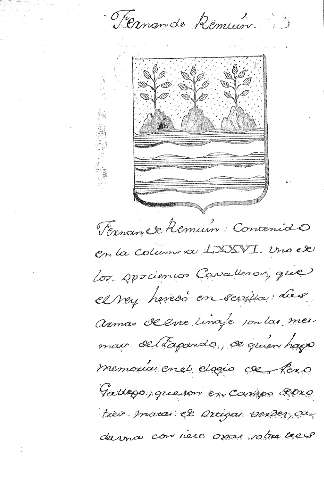 Fernan de Remuín.
Fernan de Remuín: Contenido
en la Columna LXXVI. Uno de
los docientos Cavalleros, que
el rey heredó en Sevilla: Las
armas de este linaje son las mes-
mas de Tapando, de quién hago
memoria en el elogio de Pero
Gallego, que son en campo de oro
tres matas de ortigas verdes, ca-
da una con siete ojas sobre tres